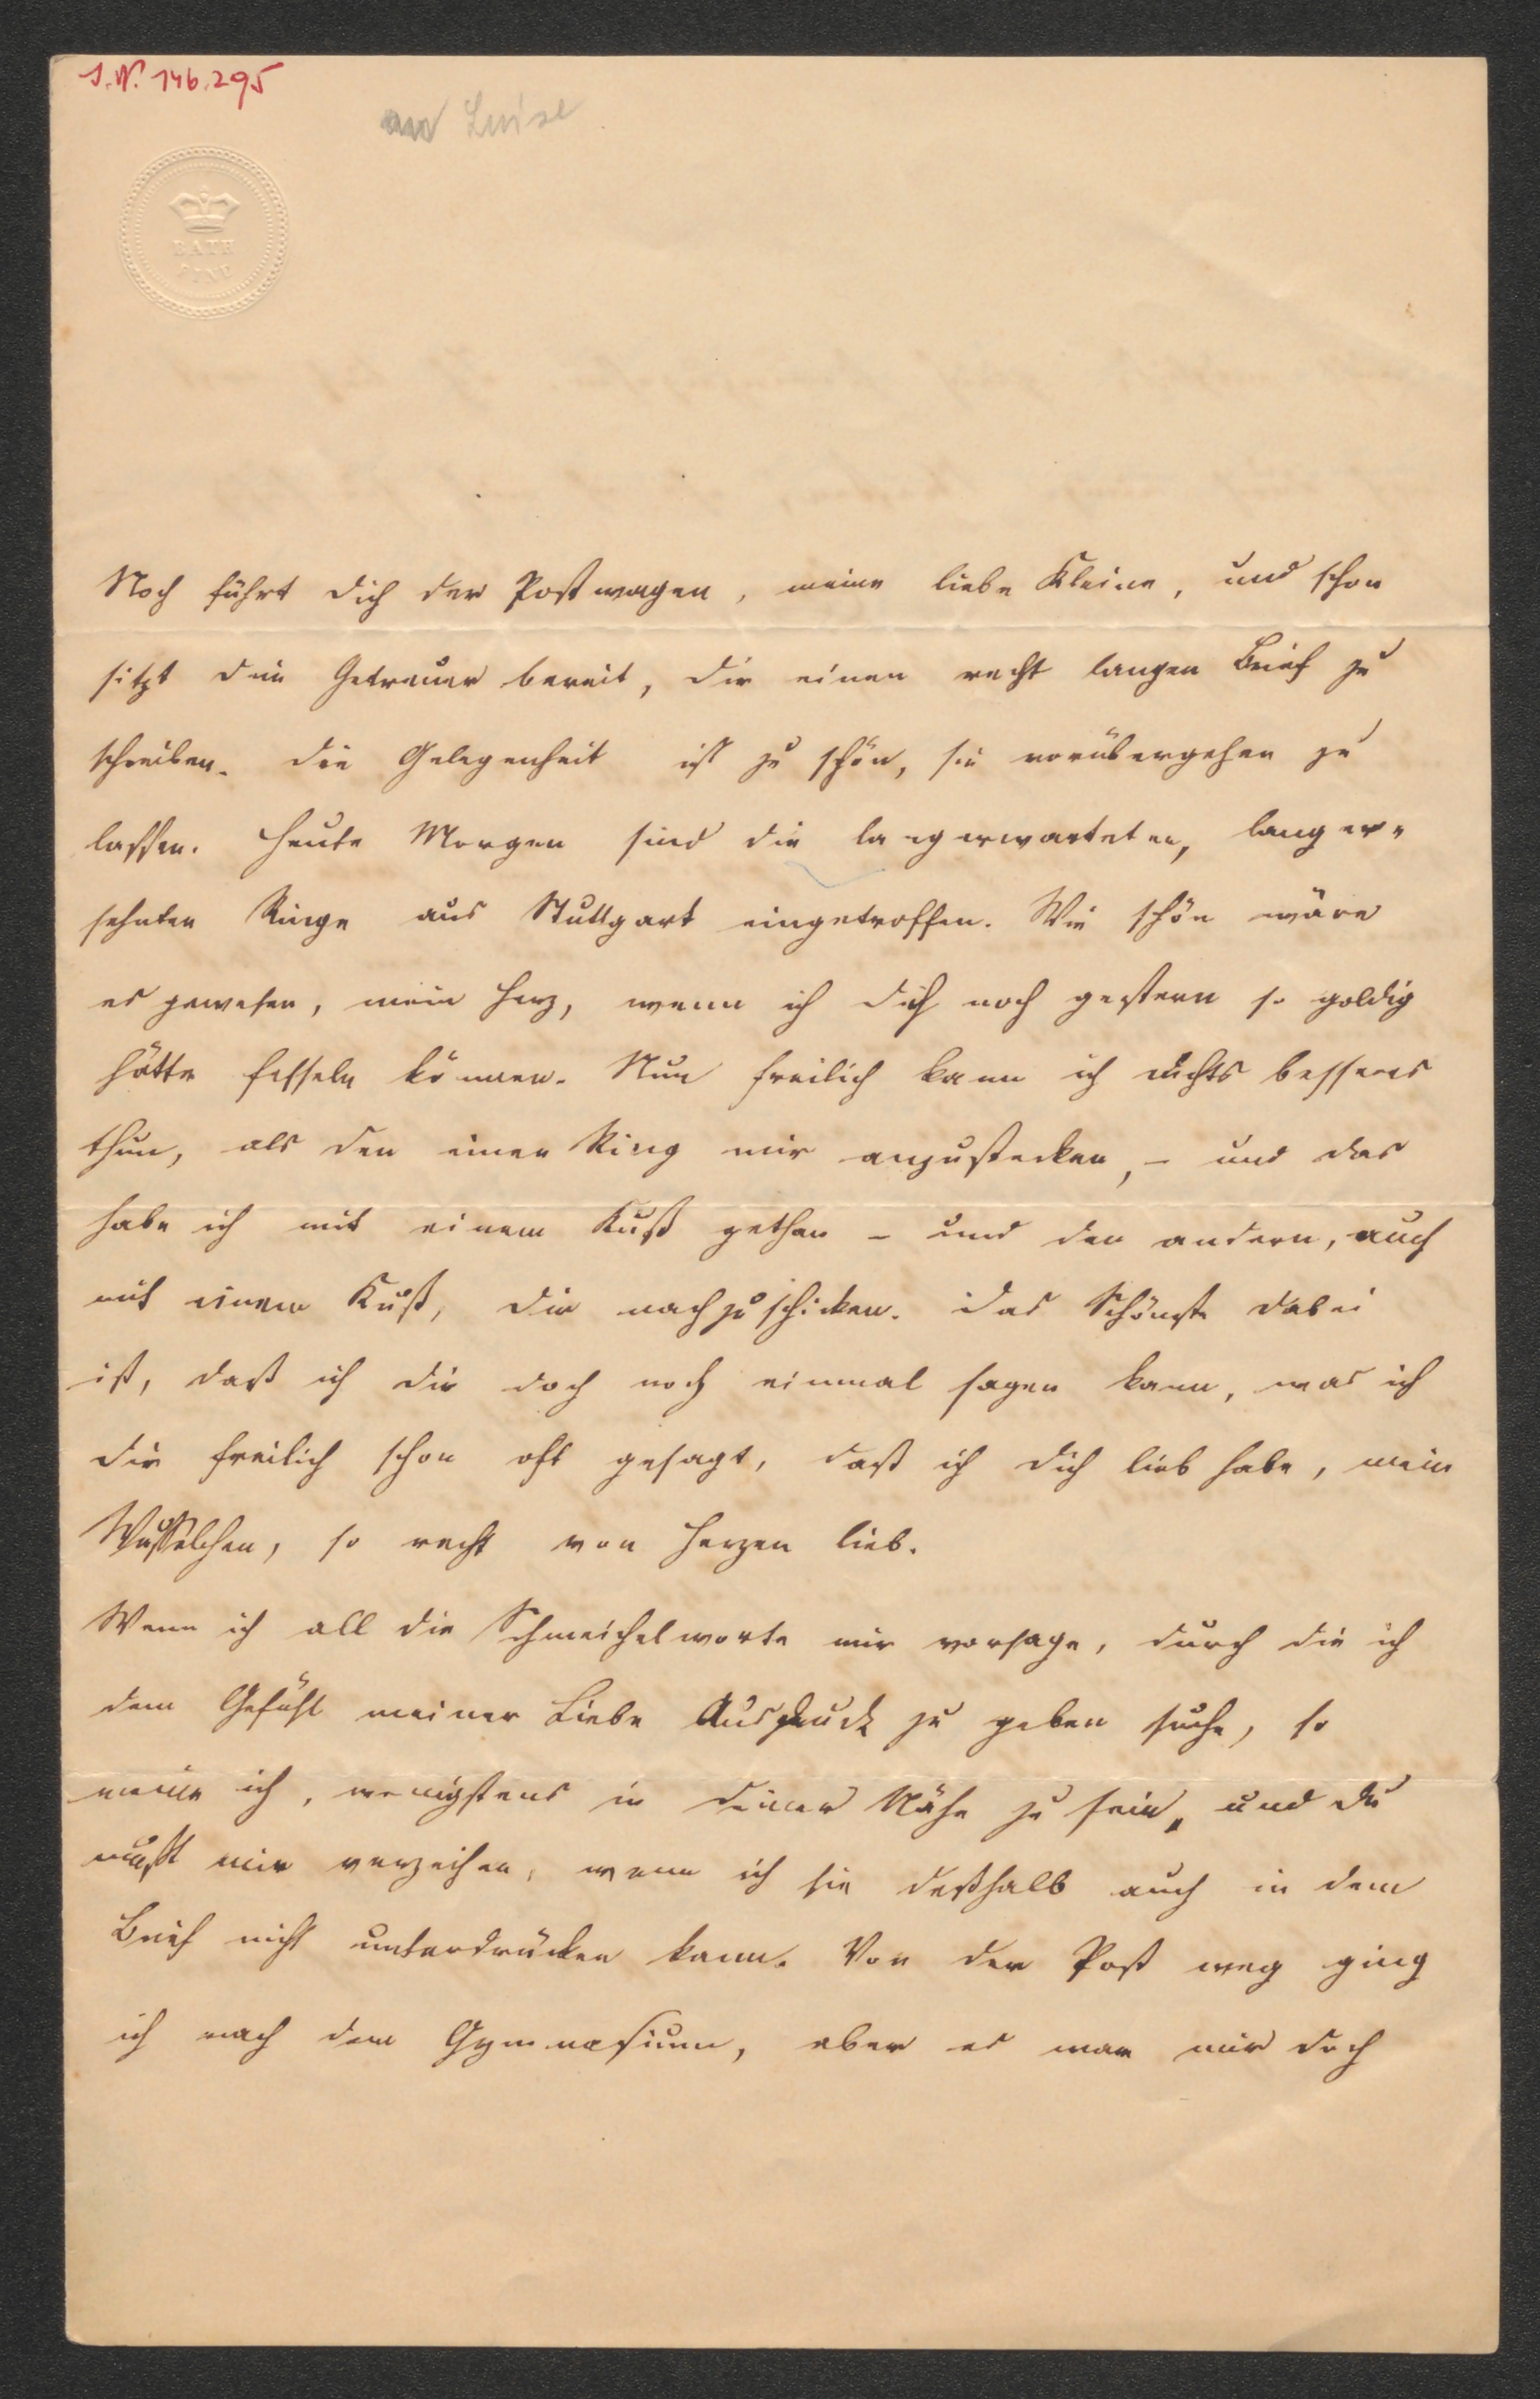 I.N. 146.295
an Luise
BATH
Noch führt Dich der Postwagen, meine liebe Kleine, und schon
sitzt Dein Getreuer bereit, Dir einen recht langen Brief zu
schreiben. Die Gelegenheit ist zu schön, sie vorübergehen zu
lassen. Heute Morgen sind die langerwarteten, langer-
sehnten Ringe aus Stuttgart eingetroffen. Wie schön wäre
es gewesen, mein Herz, wenn ich Dich noch gestern so goldig
hätte fesseln können. Nun freilich kann ich nichts besseres
thun, als den einen Ring mir anzustecken, – und das
habe ich mit einem Kuß gethan – und den andern, auch
mit einem Kuß, Dir nachzuschicken. Das Schönste dabei
ist, daß ich Dir doch noch einmal sagen kann, was ich
Dir freilich schon oft gesagt, daß ich Dich lieb habe, mein
Wusselchen, so recht von Herzen lieb.
Wenn ich all die Schmeichelworte mir vorsage, durch die ich
dem Gefühl meiner Liebe Ausdruck zu geben suche, so
meine ich, wenigstens in Deiner Nähe zu sein, und Du
mußt mir verzeihen, wenn ich sie deßhalb auch in dem
Brief nicht unterdrücken kann. Von der Post weg ging
ich nach dem Gymnasium, aber es war mir doch